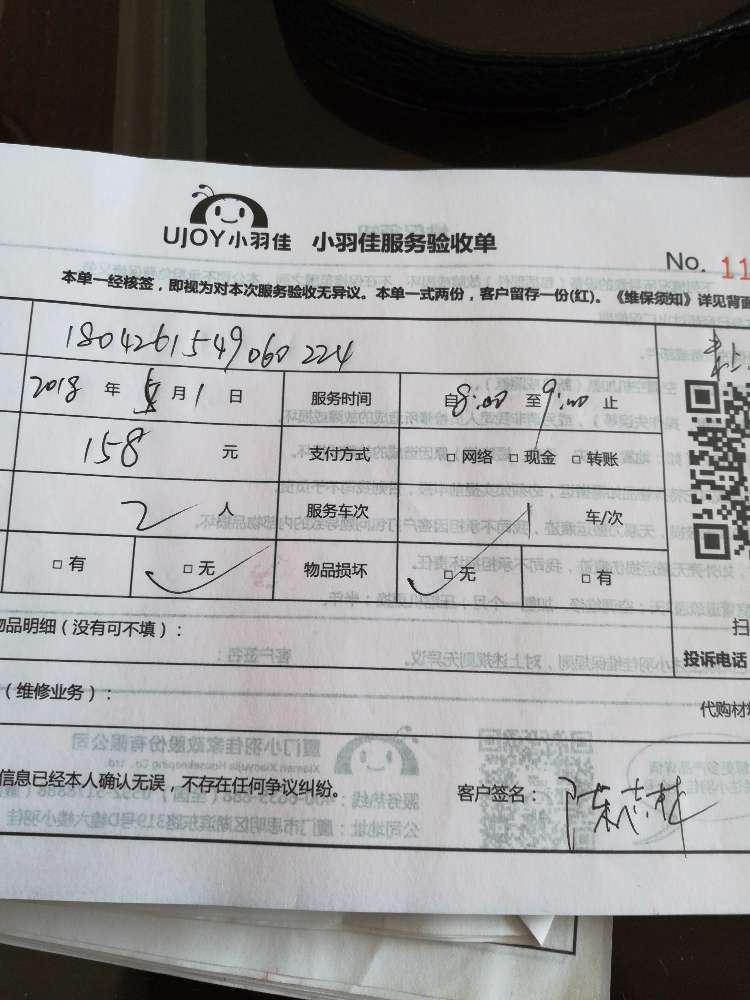 UJOY小羽佳 小羽佳服务验收单
No. 11
本单一经核签，即视为对本次服务验收无异议。本单一式两份，客户留存一份(红)。《维保须知》详见背面
1804261549060224
2018 年 5 月 1 日 服务时间 自8:00 至9:00 止
158 元 支付方式 □ 网络 □ 现金 □ 转账
2 人 服务车次 1 车/次
□ 有 □ 无 物品损坏 □ 无 □ 有
品明细（没有可不填）：
扫
投诉电话
（维修业务）：
代购材
信息已经本人确认无误，不存在任何争议纠纷。
客户签名：